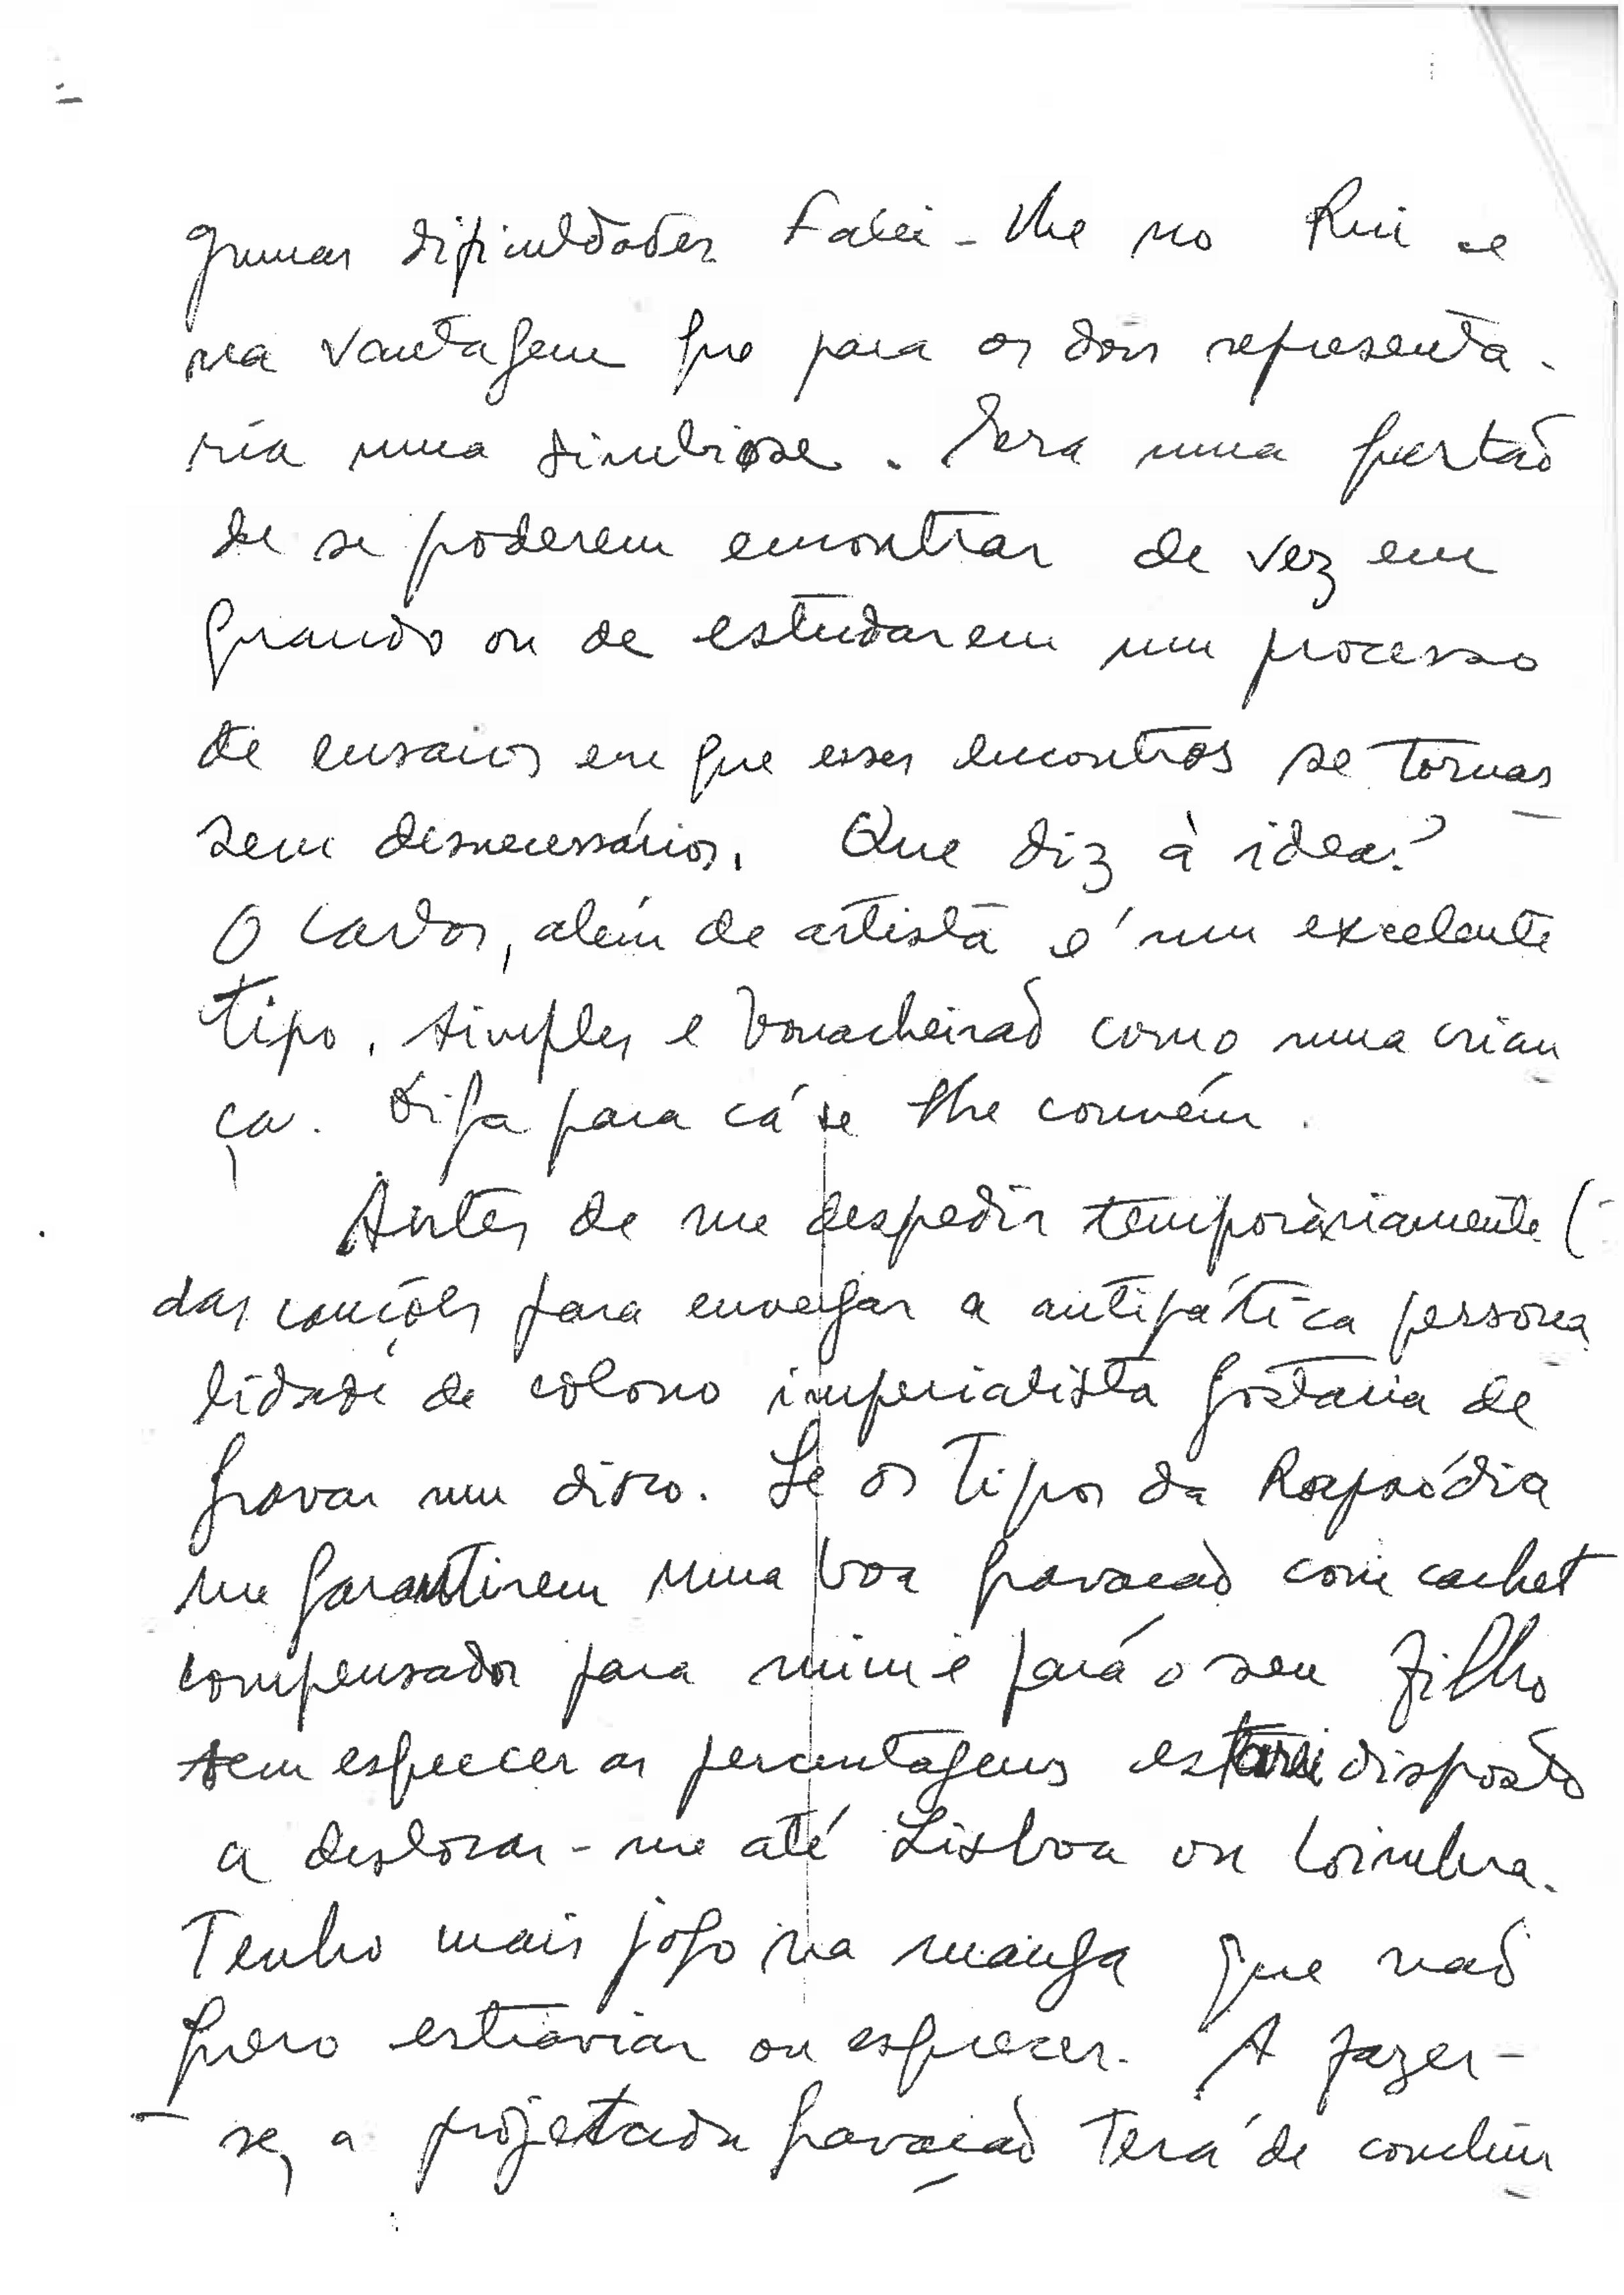 gumas dificuldades Falei-lhe no Rui e
na vantagem que para os dois representa-
ria uma simbiose. Sera uma questaõ
de se poderem encontrar de vez em
quando ou de estudarem um processo
de ensaios em que esses encontros se tornas
sem desnecessários. Que diz à idea?
O Carlos, além de artista é um excelente
tipo, simples e bonacheiraõ como uma crian
ça. Diga para cá se lhe convém.
Antes de me despedir temporàriamente (
das canções para envergar a antipática persona
lidade de colono imperialista gostaria de
gravar um disco. Se os tipos da Rapsódia
me garantirem uma boa gravacaõ com cachet
compensador para mim e para o seu filho
sem esquecer as percentagens estarei disposto
a deslocar-me até Lisboa ou Coimbra.
Tenho mais jogo na manga que naõ
quero estraviar ou esquecer. A fazer-
-se, a projetada gravaçaõ terá de concluir